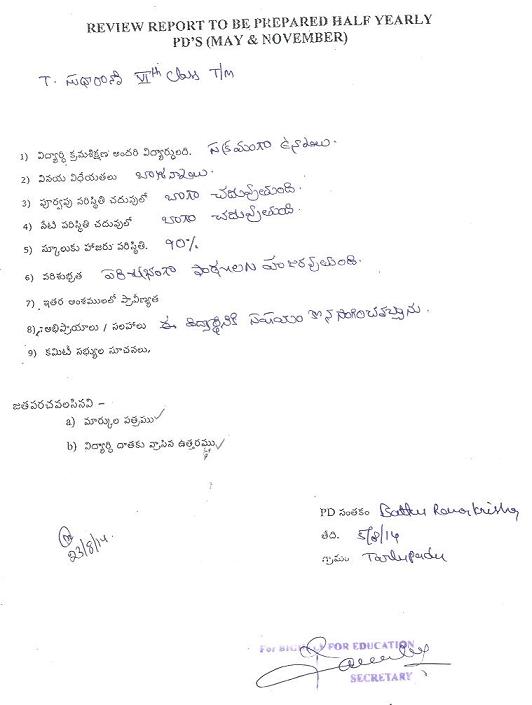 REVIEW REPORT TO BE PREPARED HALF YEARLY
PD'S (MAY & NOVEMBER)
T. సుధారాణి VIth Class T/M
1) విద్యార్థి క్రమశిక్షణ అందరి విద్యార్థులది. సక్రమంగా ఉన్నాయి.
2) వినయ విధేయతలు బాగున్నాయి.
3) పూర్వపు పరిస్థితి చదువులో బాగా చదువుతుంది.
4) నేటి పరిస్థితి చదువులో బాగా చదువుతుంది.
5) స్కూలుకు హాజరు పరిస్థితి. 90%
6) పరిశుభ్రత పరిశుభ్రంగా హాజరవుతుంది.
7) ఇతర అంశములలో ప్రావీణ్యత
8) అభిప్రాయాలు / సలహాలు ఈ విద్యార్థినికి సహాయం కొనసాగించవచ్చును.
9) కమిటీ సభ్యుల సూచనలు.
జతపరచవలసినవి –
a) మార్కుల పత్రము ✓
b) విద్యార్థి దాతకు వ్రాసిన ఉత్తరము ✓
PD సంతకం Battu Ramakrishna
తేది. 5/8/14
గ్రామం Tarlupadu
23/8/14.
For BIG FOR EDUCATION
SECRETARY